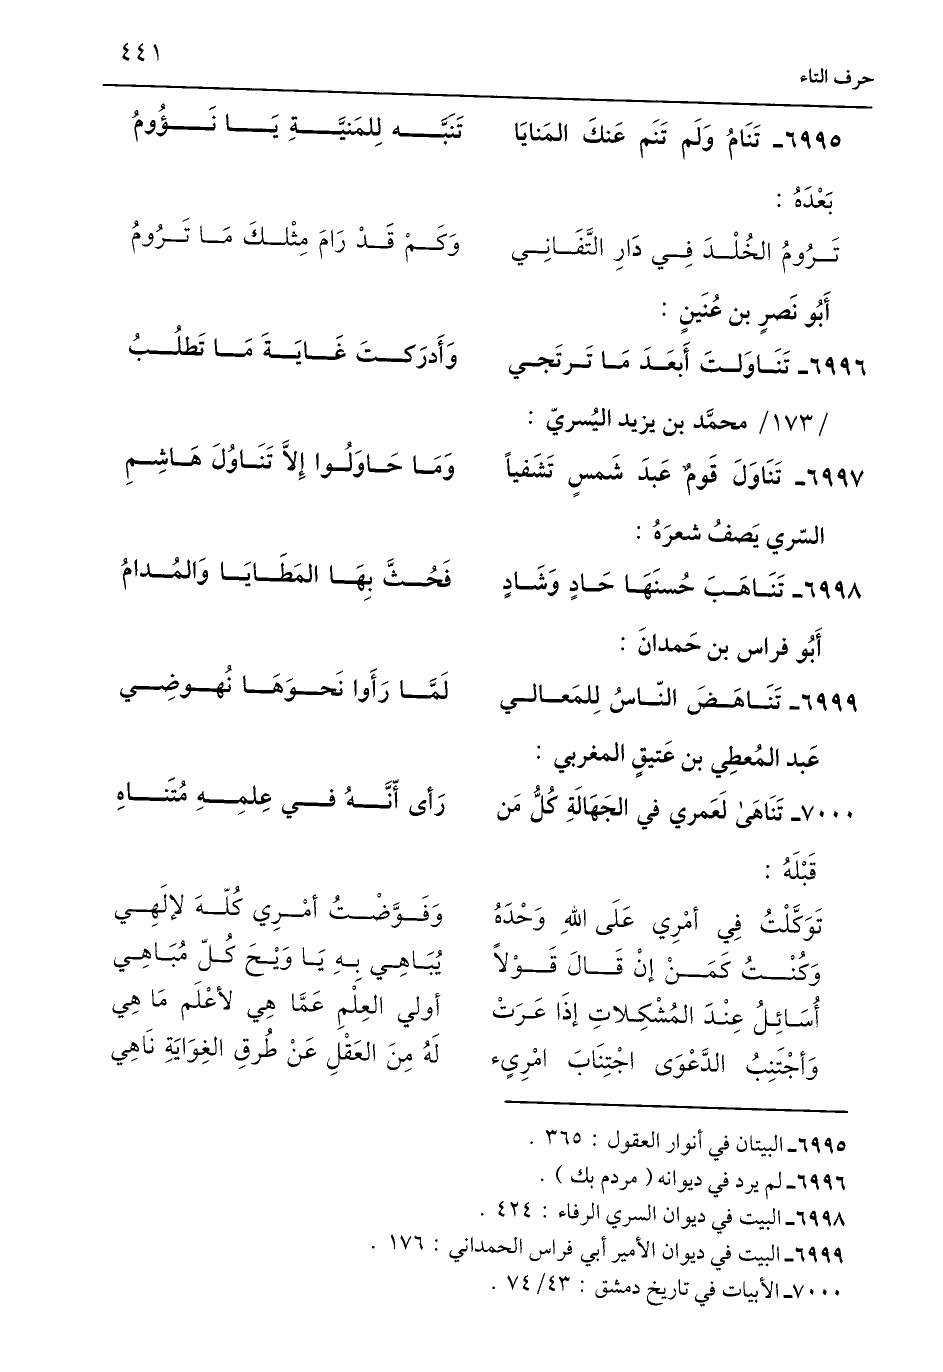 ٤٤١
حرف التاء
٦٩٩٥ـ تَنَامُ وَلَم تَنَم عَنكَ المَنايَا تَنَبَّـــه لِلمَنيَّـــةِ يَـــا نَـــؤُومُ
بَعْدَهُ :
تَــرُومُ الخُلْــدَ فِــي دَارِ التَّفَــانِــي وَكَــمْ قَــدْ رَامَ مِثْلــكَ مَــا تَــرُومُ
أَبُو نَصرٍ بن عُنَينٍ :
٦٩٩٦ـ تَنَــاوَلــتَ أَبعَــدَ مَــا تَــرتَجــي وَأَدرَكــتَ غَــايَــةَ مَــا تَطلُــبُ
/١٧٣/ محمَّد بن يزيد اليُسريّ :
٦٩٩٧ـ تَنَاوَلَ قَومٌ عَبدَ شَمسٍ تَشَفياً وَمَــا حَــاوَلُــوا إِلاَّ تَنَــاوُلَ هَــاشِــمِ
السّري يَصفُ شعرَهُ :
٦٩٩٨ـ تَنَــاهَــبَ حُسنَهَــا حَــادٍ وَشَــادٍ فَحُــثَّ بِهَــا المَطَــايَــا وَالمُــدامُ
أَبُو فراس بن حَمدانَ :
٦٩٩٩ـ تَنَــاهَــضَ النّــاسُ لِلمَعَــالــي لَمَّــا رَأَوا نَحــوَهَــا نُهــوضِــي
عَبد المُعطِي بن عَتيقٍ المغربي :
٧٠٠٠ـ تَنَاهَىٰ لَعَمري في الجَهَالَةِ كُلُّ مَن رَأى أَنَّــهُ فــي عِلمِــهِ مُتَنــاهِ
قَبْلَهُ :
تَوَكَّلْتُ فِي أمْرِي عَلَى اللهِ وَحْدَهُ وَفَــوَّضْــتُ أمْــرِي كُلّــهَ لإلَهِــي
وَكُنْــتُ كَمَــنْ إنْ قَــالَ قَــوْلاً يُبَــاهِــي بِــهِ يَــا وَيْــحَ كُــلّ مُبَــاهِــي
أُسَــائِلُ عِنْــدَ المُشْكِــلاتِ إذَا عَــرَتْ أولي العِلْمِ عَمَّا هِي لأعْلَم مَا هِي
وَأجْتَنِبُ الدَّعْوَى اجْتِنَابَ امْرِيء لَهُ مِنَ العَقْلِ عَنْ طُرقِ الغِوَايَةِ نَاهِي
٦٩٩٥ـ البيتان في أنوار العقول : ٣٦٥ .
٦٩٩٦ـ لم يرد في ديوانه ( مردم بك ) .
٦٩٩٨ـ البيت في ديوان السري الرفاء : ٤٢٤ .
٦٩٩٩ـ البيت في ديوان الأمير أبي فراس الحمداني : ١٧٦ .
٧٠٠٠ـ الأبيات في تاريخ دمشق : ٤٣/ ٧٤ .